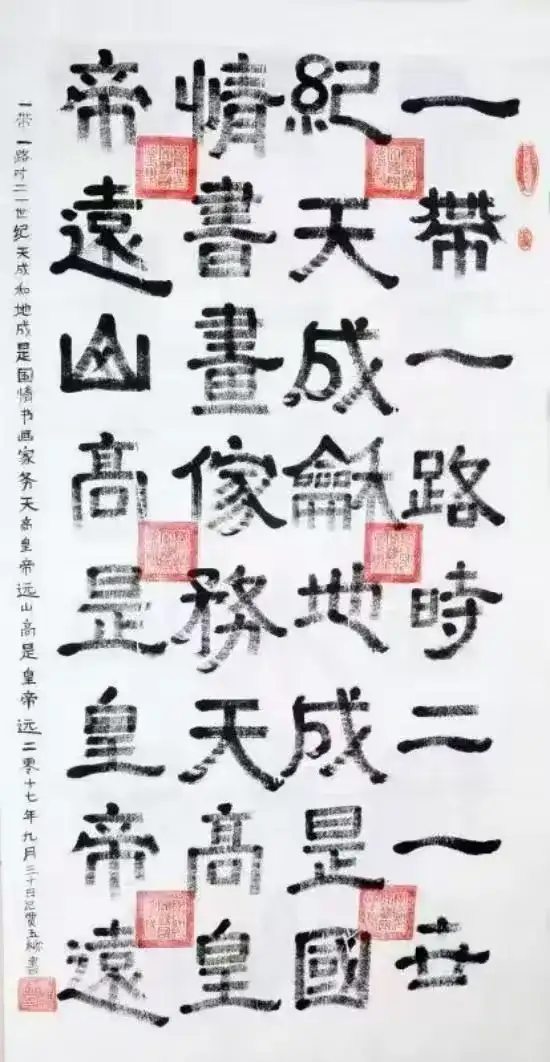 一帶一路時二一世
紀天成龢地成是國
情書畫傢務天高皇
帝遠山高是皇帝遠
一带一路时二一世纪天成和地成是国情书画家务天高皇帝远山高是皇帝远二零十七年九月三十日